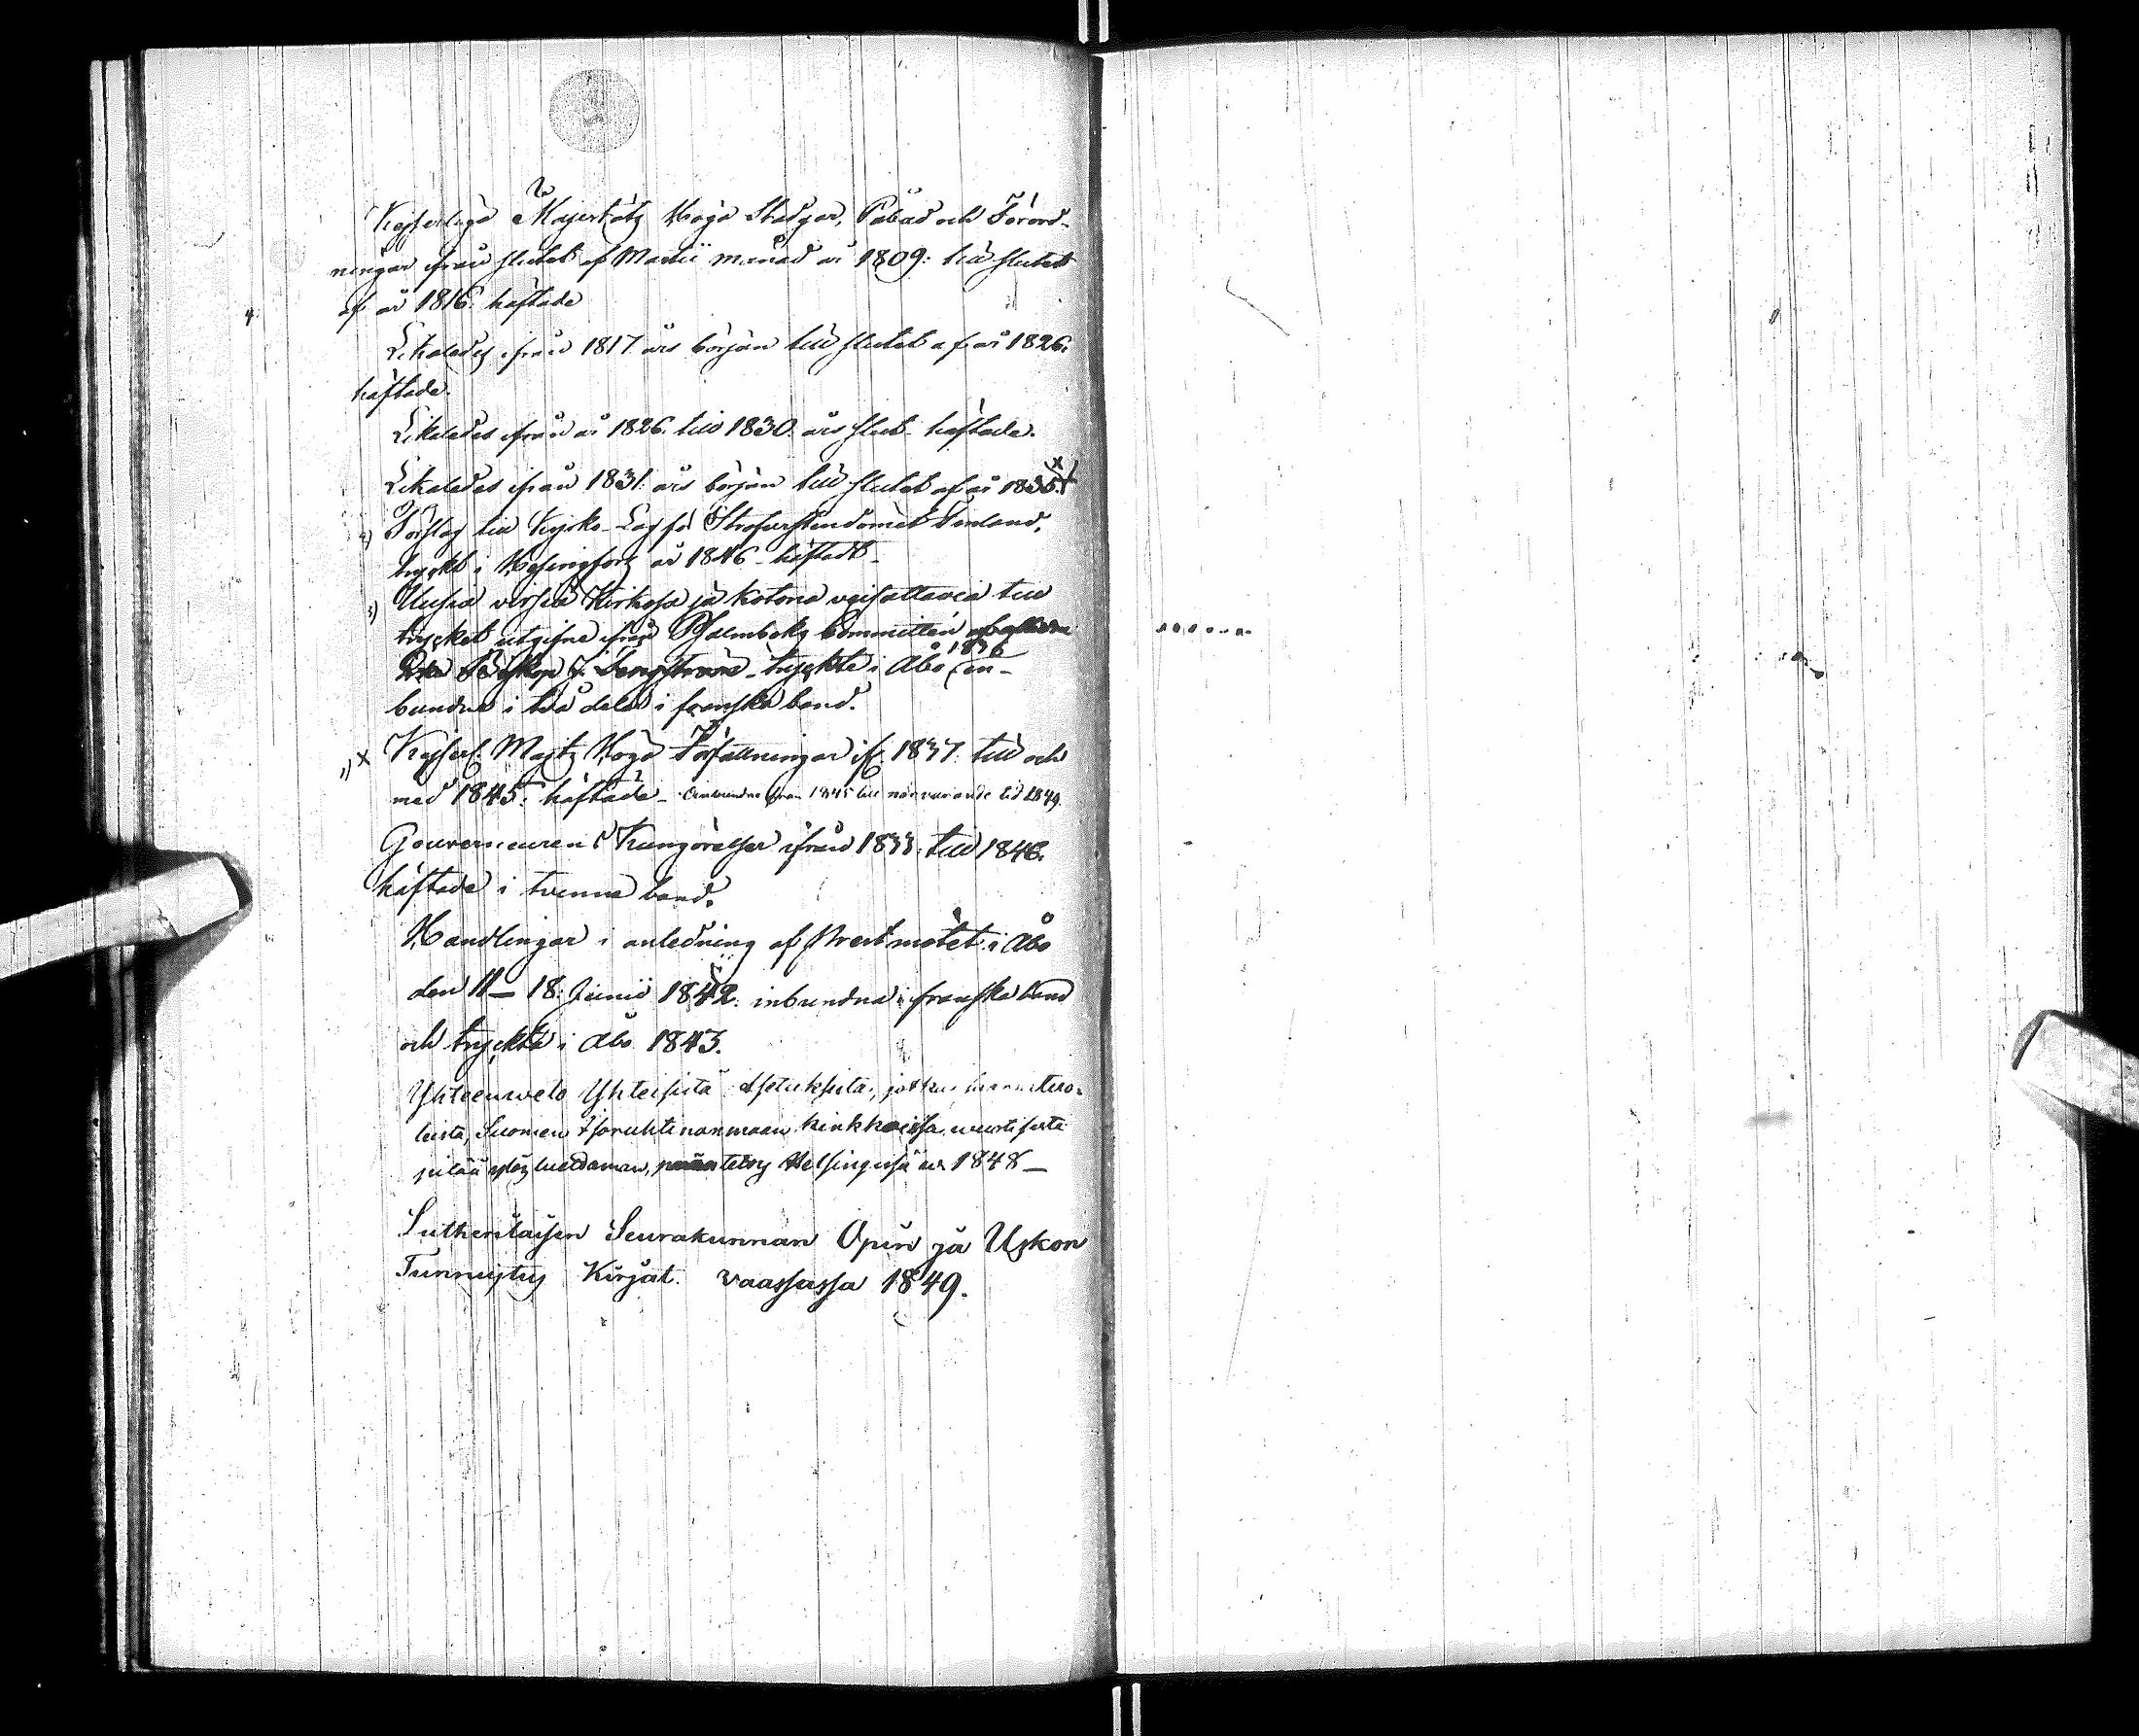 Kejserliga Majestätz Höga Stadgar, Påbud och Förord-
ningar ifrån slutet af Martii månad år 1809: till slutet
af år 1816. häftade
Likaledes ifrån 1817 års början till slutet af år 1826.
häftade.
Likaledes ifrån år 1826. till 1830. års slut - häftade.
Likaledes ifrån 1831. års början till slutet af år 1835. x
Förslag till Kyrko-Lag för Storfurstendömet Finland,
tryckt i Helsingfors år 1846 - häftadt -
3) Uusia virsiä Kirkosa ja kotona veisattavia till
trycket utgifne ifrån Psalmboks Committén
tryckte i Åbo 1836 in-
bundne i två delar i franska band.
1) x Kejserl. Majtz Höga Författningar if. 1837. till och
med 1845. häftade - Oinbundne från 1845 till närvarande tid 1849.
Gouverneurens Kungörelser ifrån 1833. till 1846.
häftade i tvenne band.
Handlingar i anledning af Prestmötet i Åbo
den 11 - 18. Junii 1842. inbundna i franska band
och tryckta i Åbo 1843.
Yhteenweto Yhteisistä Asetuksista, jotka
Suomen Isoruhtinanmaan kirkkoissa
pitää ylös luettaman, Helsingissä 1848 -
Lutherilaisen Seurakunnan Opin ja Uskon
Tunnustus Kirjat. Vaassassa 1849.